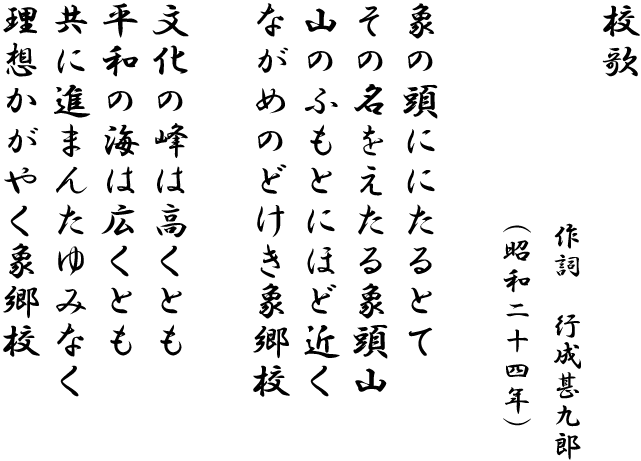 校歌
作詞 行成甚九郎
（昭和二十四年）
象の頭ににたるとて
その名をえたる象頭山
山のふもとにほど近く
ながめのどけき象郷校
文化の峰は高くとも
平和の海は広くとも
共に進まんたゆみなく
理想かがやく象郷校